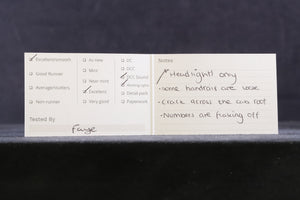 Excellent/smooth
Good Runner
Average/stutters
Non-runner
Tested By
As new
Mint
Near mint
Excellent
Very good
DC
DCC
DCC Sound
Working Lights
Detail pack
Paperwork
Notes
Headlights only
-some handrails are loose
-Crack across the cab roof
-Numbers are flaking off